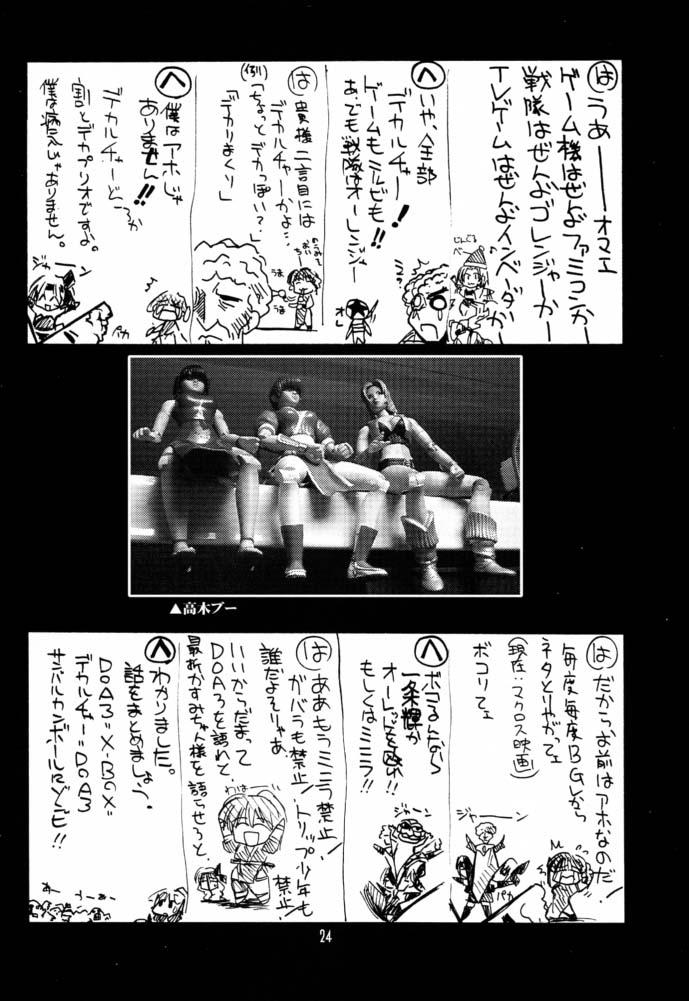 は
うあーーオマエ
ゲーム機はぜんぶファミコンかー
戦隊はぜんぶゴレンジャーかー
テレゲームはぜんぶインベーダーかー
へ
いや、全部
デカルチャー!
ゲームもミルピも!!
あ、でも戦隊はオーレンジャー
オレ
は
貴様二言目には
デカルチャーかよ…
(例)「ちょっとデカっぽい?」
「デカりまくり」
うま
うま
へ
僕はアホじゃ
ありません!!
デカルチャーどころか
割とデカプリオですよ。
僕は病人じゃありません。
ジャーン
パカ
▲高木ブー
は
だからお前はアホなのだ!
毎度毎度BGMから
ネタとりやがってェ
(現在:マクロス映画)
ボコりてェ
ジャーン
パカ
へ
ボコるんなら
一条輝か
オーレッドを殴れ!!
もしくはミニラ!!
ジャーン
は
ああもうミニラ禁止!
ガバラも禁止!トリップ少年も禁止!
誰だよそりゃあ
いいからだまって
DOA3を語れて
最新かすみちゃん様を語らせろと
わは
へ
わかりました。
話をまとめましょう。
DOA3=X-BOX=
デカルチャー=DOA3
サンバルカンボールはどこ!!
わー
うーあー
24